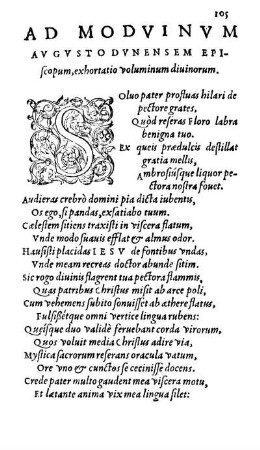 105
AD MODVINVM
AVGVSTODVNENSEM EPI-
scopum, exhortatio voluminum diuinorum.
SOluo pater profluas hilari de
pectore grates,
Quòd reseras Floro labra
benigna tuo.
Ex queis prædulcis destillat
gratia mellis,
Ambrosiúsque liquor pe-
ctora nostra fouet.
Audieras crebrò domini pia dicta iubentis,
Os ego, si pandas, exsatiabo tuum.
Cælestem sitiens traxisti in viscera flatum,
Vnde modò suauis efflat & almus odor.
Hausisti placidas IESV de fontibus vndas,
Vnde meam recreas doctor abunde sitim.
Sic rogo diuinis flagrent tua pectora flammis,
Quas patribus Christus misit ab arce poli,
Cum vehemens subito sonuisset ab æthere flatus,
Fulsissétque omni vertice lingua rubens:
Queísque duo validè feruebant corda virorum,
Quos voluit media Christus adire via,
Mystica sacrorum reserans oracula vatum,
Ore vno & cunctos se cecinisse docens.
Crede pater multo gaudent mea viscera motu,
Et lætante anima vix mea lingua silet: